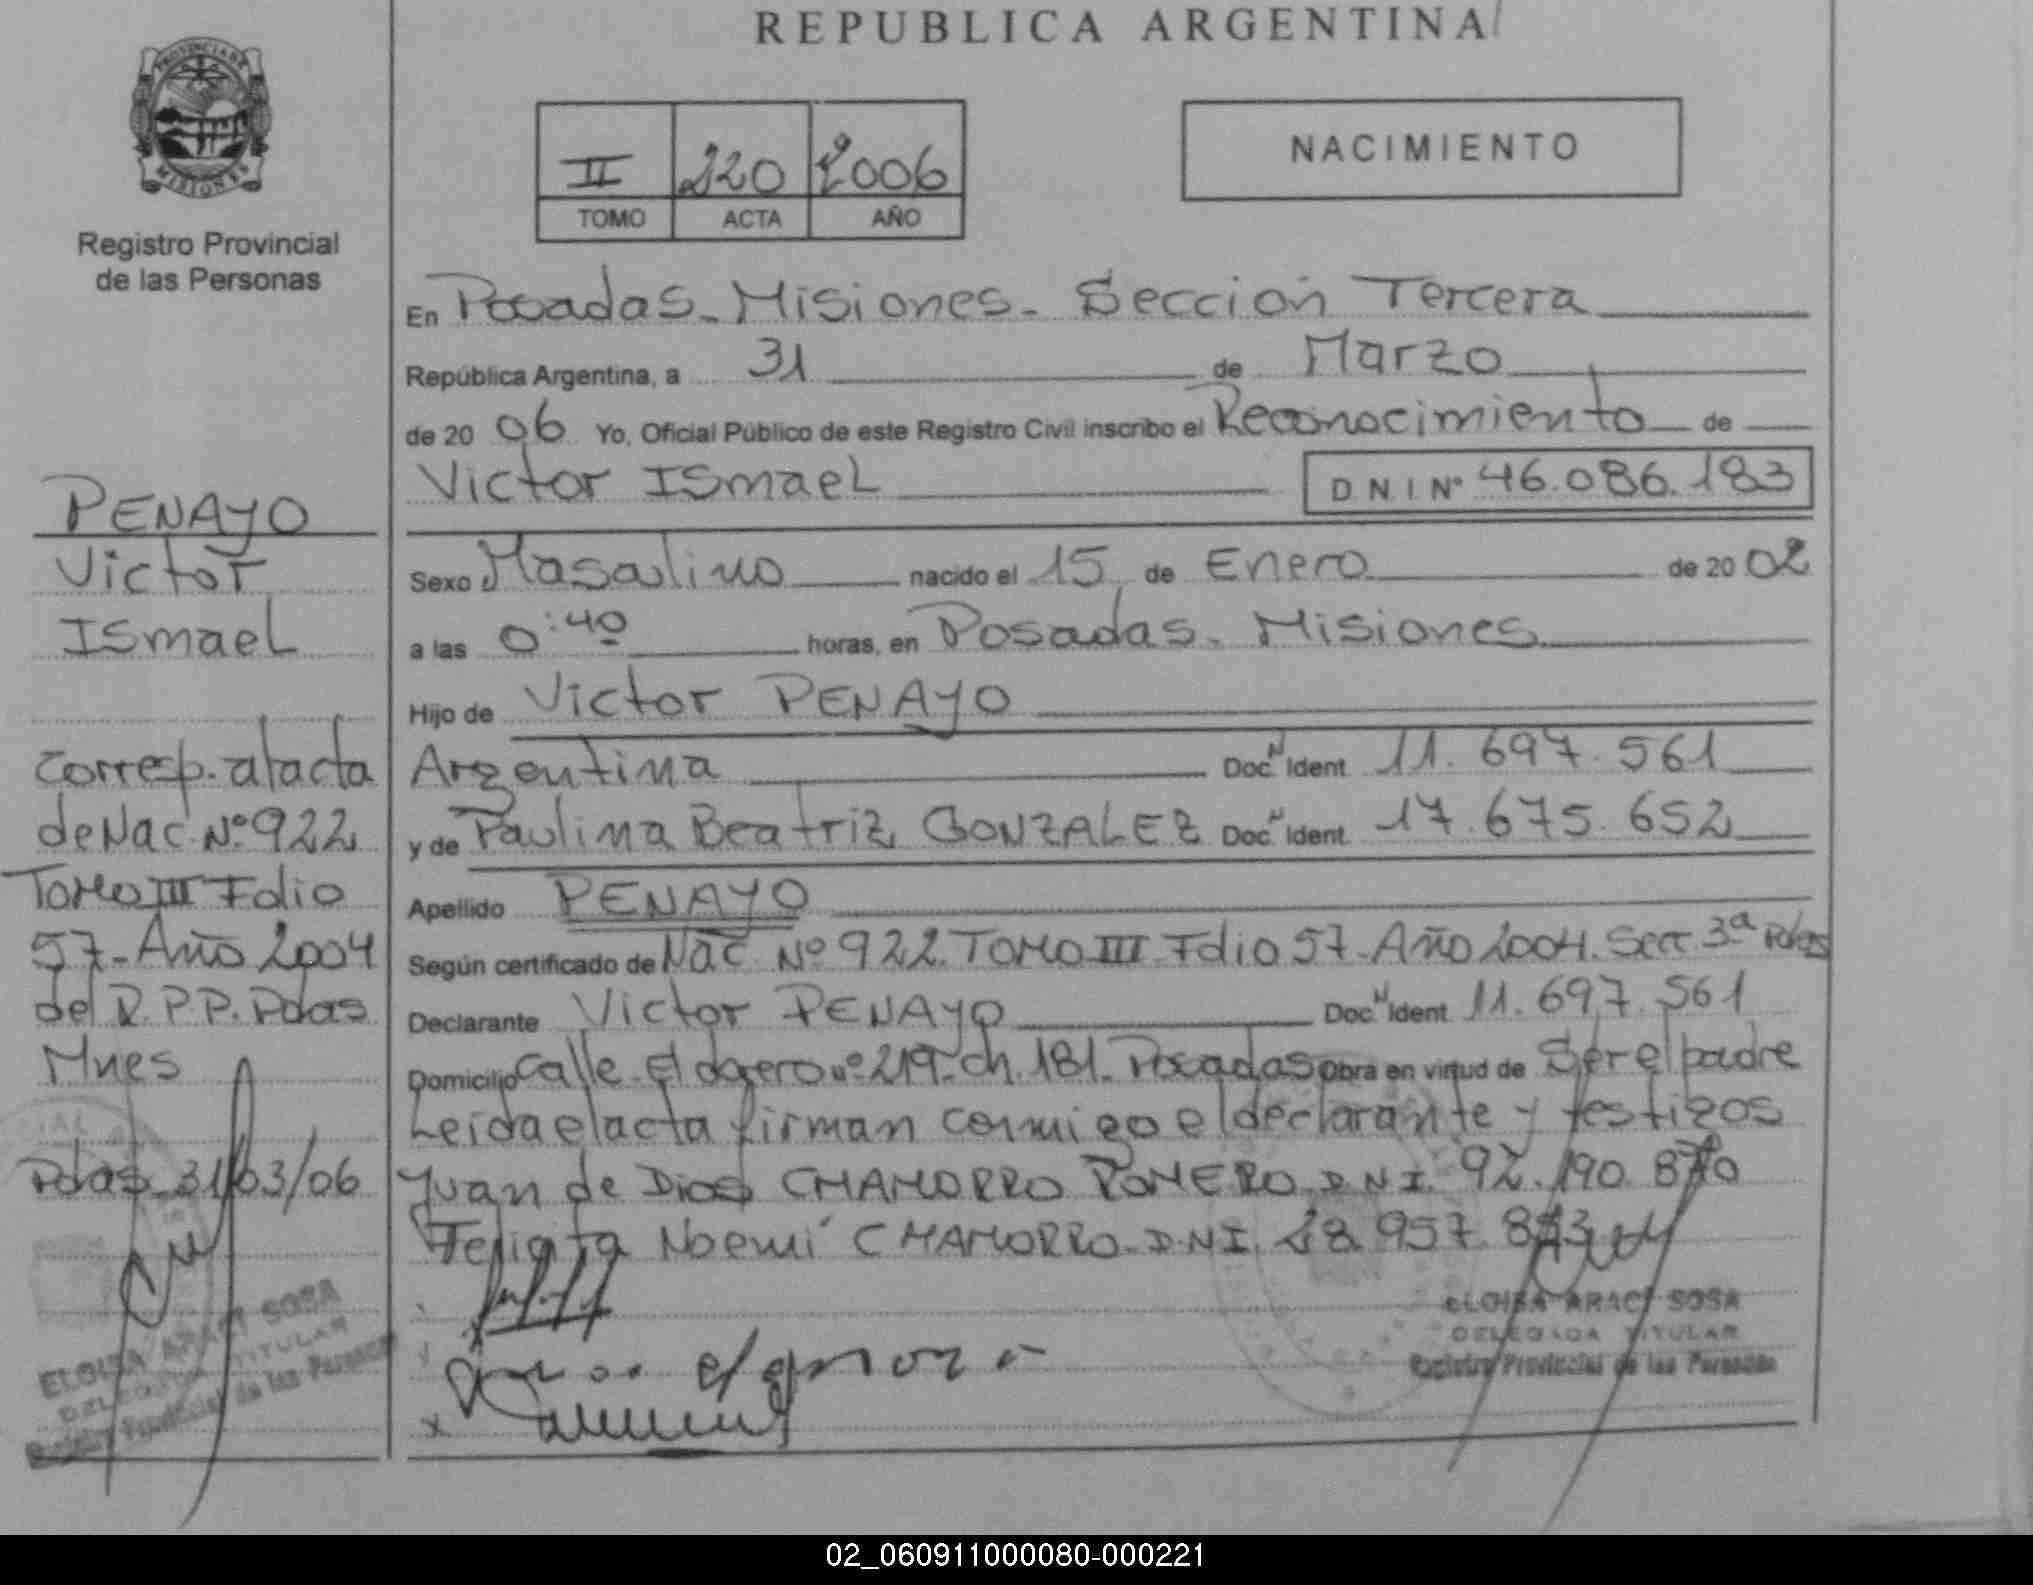 REPUBLICA ARGENTINA
PROVINCIA DE
MISIONES
Registro Provincial
de las Personas
II 220 2006
TOMO ACTA AÑO
NACIMIENTO
En Posadas - Misiones - Sección Tercera
República Argentina, a 31 de Marzo
de 20 06 Yo, Oficial Público de este Registro Civil inscribo el Reconocimiento de
Victor Ismael D N I Nº 46.086.183
Sexo Masculino nacido el 15 de Enero de 20 02
a las 0:40 horas, en Posadas - Misiones
Hijo de Victor PENAYO
Argentina Doc. N Ident 11.697.561
y de Paulina Beatriz GONZALEZ Doc. N Ident 17.675.652
Apellido PENAYO
Según certificado de Nac. Nº 922 Tomo III Folio 57 - Año 2004. Secc. 3ª Pdas
Declarante Victor PENAYO Doc. N Ident 11.697.561
Domicilio Calle nº 219 - ch. 181 - Posadas obra en virtud de Ser el padre
Leída el acta firman conmigo el declarante y testigos
Juan de Dios CHAMORRO ROMERO D.N.I. 92.190.870
Noemí CHAMORRO - D.N.I.
ELOISA ARACI SOSA
DELEGADA TITULAR
Registro Provincial de las Personas
PENAYO
Victor
Ismael
Corresp. al acta
de Nac. Nº 922
Tomo III Folio
57 - Año 2004
del R.P.P. Pdas
Mnes
Pdas - 31/03/06
ELOISA ARACI SOSA
DELEGADA TITULAR
Registro Provincial de las Personas
02_060911000080-000221